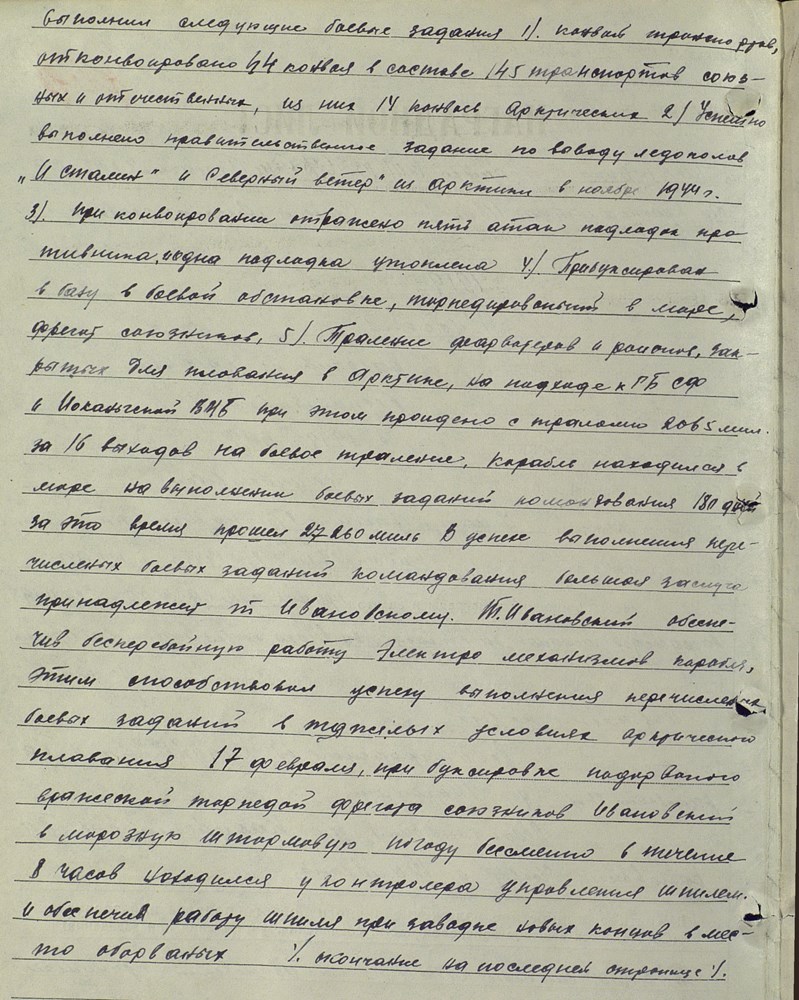 выполнил следующие боевые задания 1/. конвой транспортов,
отконвоировано 44 конвоя в составе 145 транспортов союз-
ных и отечественных, из них 14 конвоев Арктических 2/ Успешно
выполнено правительственное задание по вводу ледоколов
„И Сталин" и Северный ветер" из Арктики в ноябре 1944 г.
3/. При конвоировании отражено пять атак подлодок про-
тивника, одна подлодка утоплена 4/ Прибуксирован
в базу в боевой обстановке, торпедированный в море,
фрегат союзников, 5/. Траление фарватеров и районов, зак-
рытых для плавания в Арктике, на подходе к ГБ СФ
и Иоканьгской ВМБ при этом пройдено с тралами 2065 мил.
за 16 выходов на боевое траление, Корабль находился в
море на выполнении боевых заданий командования 180 дней
за это время прошел 27260 миль В успехе выполнения пере-
численых боевых заданий командования большая заслуга
принадлежит т Ивановскому. Т. Ивановский обеспе-
чив бесперебойную работу Электро механизмов корабля,
этим способствовал успеху выполнения перечисленых
боевых заданий в тяжелых условиях арктического
плавания 17 февраля, при буксировке подорваного
вражеской торпедой фрегата союзников Ивановский
в морозную штормовую погоду бессменно в течение
8 часов находился у контролера управления шпилем.
и обеспечив работу шпиля при заводке новых концов в мес-
то оборваных /. окончание на последней странице /.